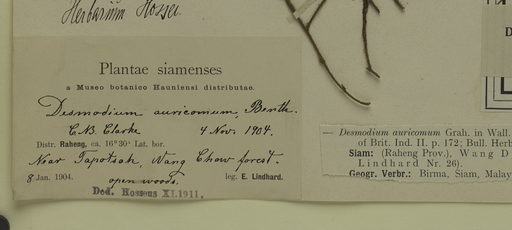 Herbarium Hossei.
Plantae siamenses
a Museo botanico Hauniensi distributae.
Desmodium auricomum, Benth.
C.B. Clarke 4 Nov. 1904.
Distr. Raheng, ca. 16°30' Lat. bor.
Near Tapotsah, Wang Chow forest.
8 Jan. 1904. open woods. leg. E. Lindhard.
Ded. Hosseus XI.1911.
— Desmodium auricomum Grah. in Wall.
of Brit. Ind. II. p. 172; Bull. Herb
Siam: (Raheng Prov.), Wang D
Lindhard Nr. 26).
Geogr. Verbr.: Birma, Siam, Malay